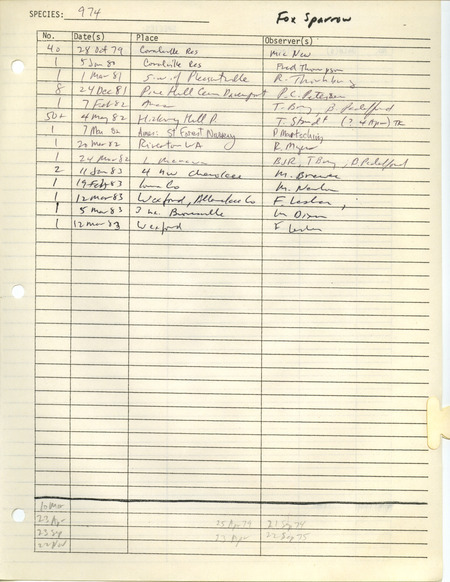 SPECIES: 974 Fox Sparrow
No. Date(s) Place Observer(s)
40 28 Oct 79 Coralville Res Mic New
1 5 Jan 80 Coralville Res Fred Thompson
1 1 Mar 81 S.W. of Pleasantville R. Thornburg
8 24 Dec 81 Pine Hill Cem Davenport P.C. Petersen
1 7 Feb 82 Ames T. Bray, B Pulliford
50+ 4 May 82 Hickory Hill P. T. (? 4 Apr) TK
1 7 Mar 82 Ames: St Forest Nursery P Martsching
1 23 Mar 82 Riverton WA R. Myer
1 24 Mar 82 L BJR, T Bray,
2 11 Jan 83 4 NW Cherokee M. Brewer
1 19 Feb 83 Co M. Newlon
1 12 Mar 83 Wexford, Allamakee Co F. Lesher,
1 5 Mar 83 3 Dixon
1 12 Mar 83 Wexford F Lesher
10 Mar
23 Apr 25 Apr 79 21 Sep 74
23 Sep 27 Apr 22 Sep 75
22 Nov